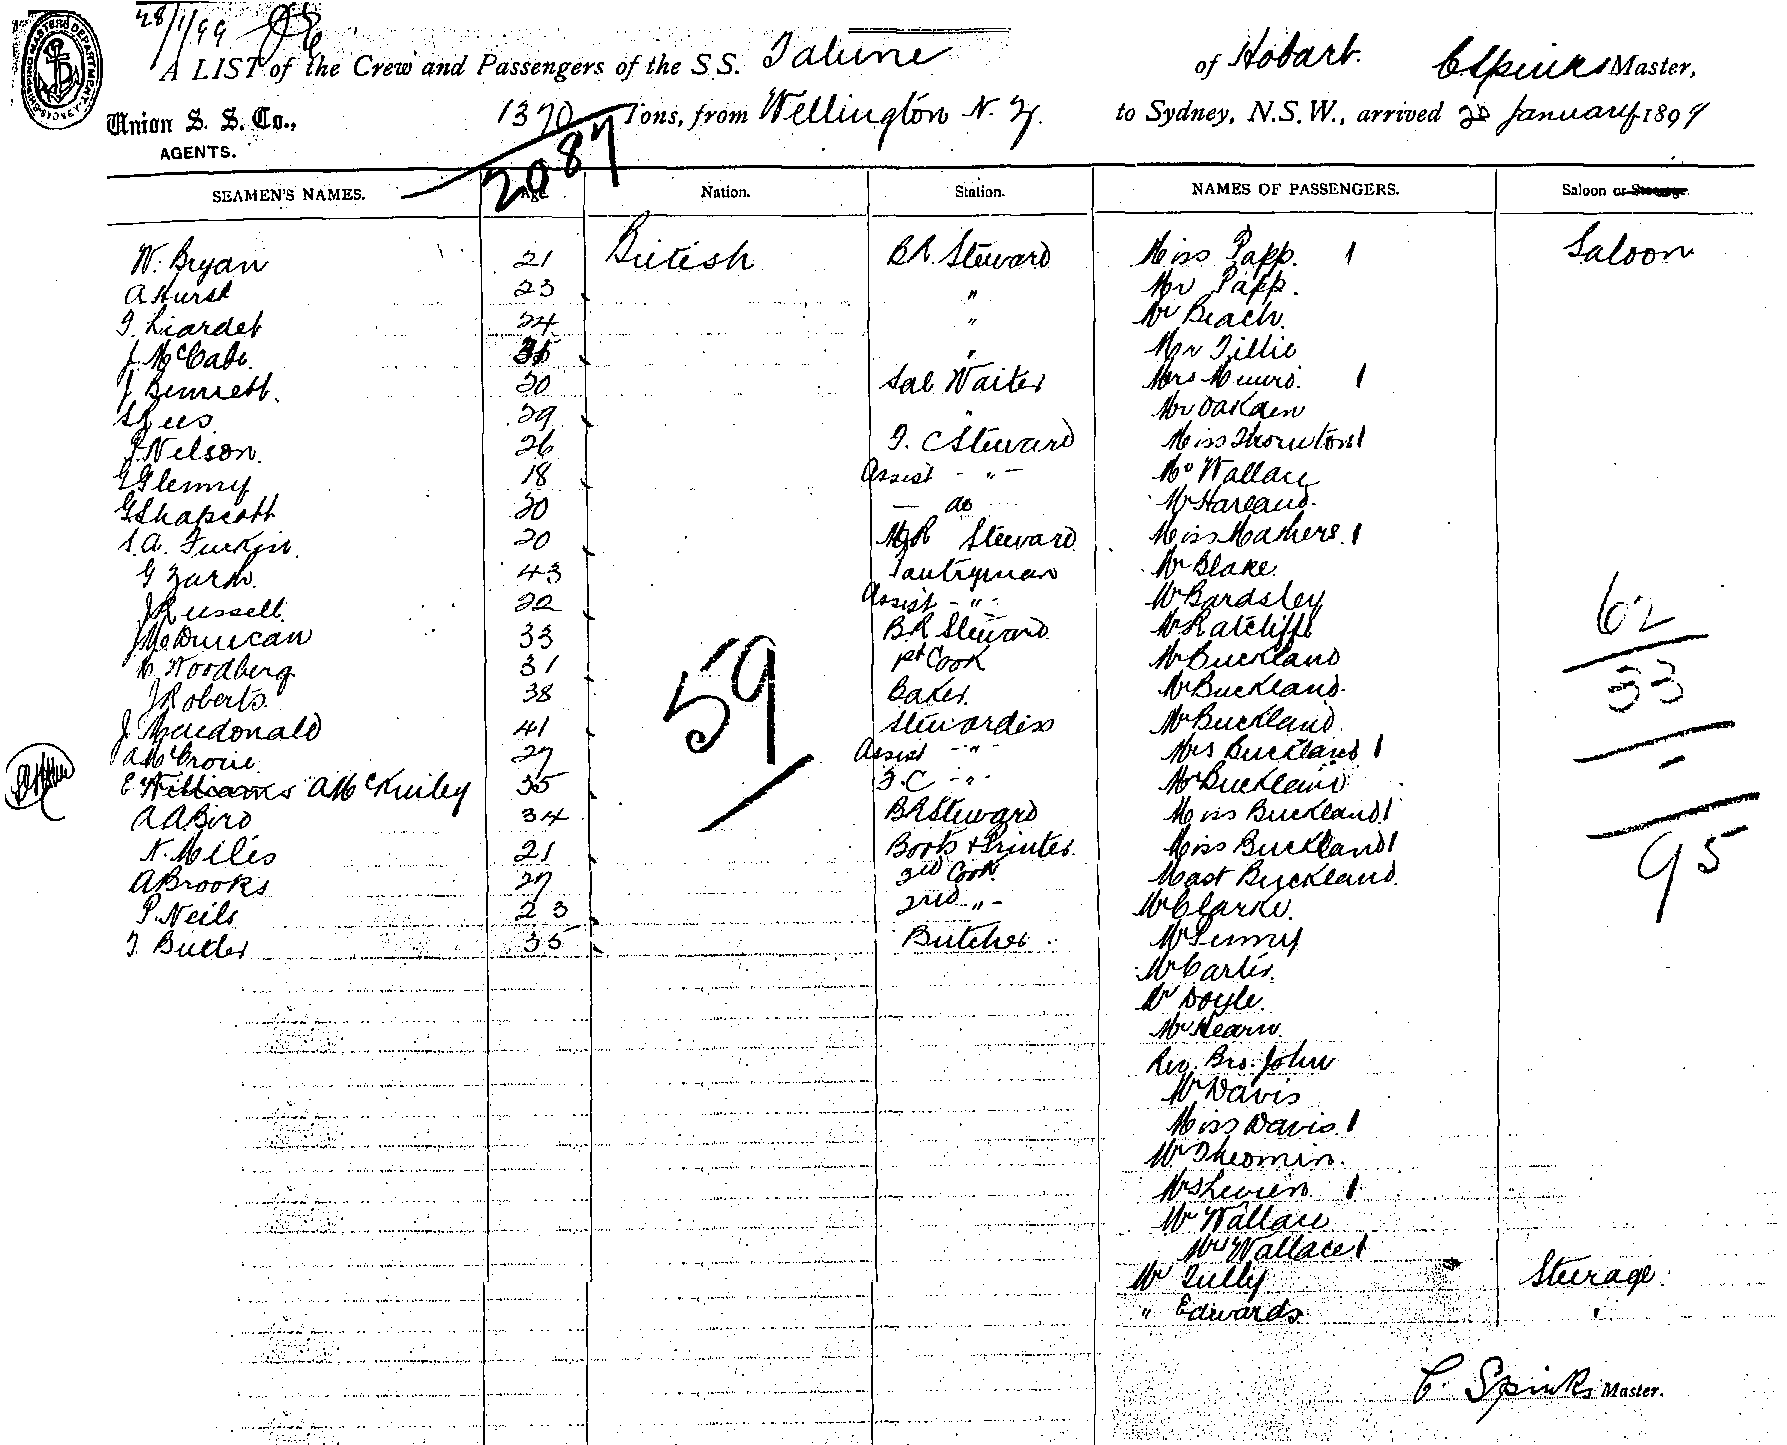 28/1/99
A LIST of the Crew and Passengers of the S.S. Talune of Hobart. C Spinks Master,
Union S. S. Co., 1370 Tons, from Wellington N.Z. to Sydney, N.S.W., arrived January 1899
AGENTS.
2087
SEAMEN'S NAMES. Age Nation. Station. NAMES OF PASSENGERS. Saloon or Steerage.
W. Bryan 21 British B.R. Steward Miss Papp. 1 Saloon
A Hurst 23 " Mr Papp.
T. Liardet 24 " Mr Beach.
J. McCabe. 35 " Mr Tillie
J Bennett. 20 Sal Waiter Mrs Munro. 1
S Lees. 29 " Mr Oakden
J. Nelson. 26 F. C Steward Miss Thornton 1
E Glenny 18 Assist - " - Mr Wallace
G Shapcott 20 - do Mr Harland.
S. A. Furkin. 20 M R Steward Miss Mathers. 1
G 43 Pantryman Mr Blake.
J Russell. 22 Assist - " - Mr Bardsley
J McDuncan 33 B.R Steward Mr Ratcliffe
Woodberg 31 Cook Mr Buckland
J Roberts. 38 Baker. Mr Buckland.
J. Macdonald 41 Stewardess Mr Buckland
A McCrorie 27 Assist - " - Mrs Buckland 1
E Williams A McKinley 35 F. C - " - Mr Buckland
A A Bird 34 B R Steward Miss Buckland 1
N. Miles 21 Boots & Printer. Miss Buckland 1
A Brooks 27 3rd Cook. Mast Buckland.
P. Neils 23 2nd - " - Mr Clarke.
T Butler 35 Butcher. Mr Penny
Mr Carter.
Mr Doyle.
Mr Hearn.
Rev. Bro. John
Mr Davis
Miss Davis. 1
Mr Theomin.
Mrs Levien 1
Mr Wallace
Mrs Wallace 1
Mr Tully Steerage.
" Edwards "
59
62
33
-
95
C. Spinks Master.